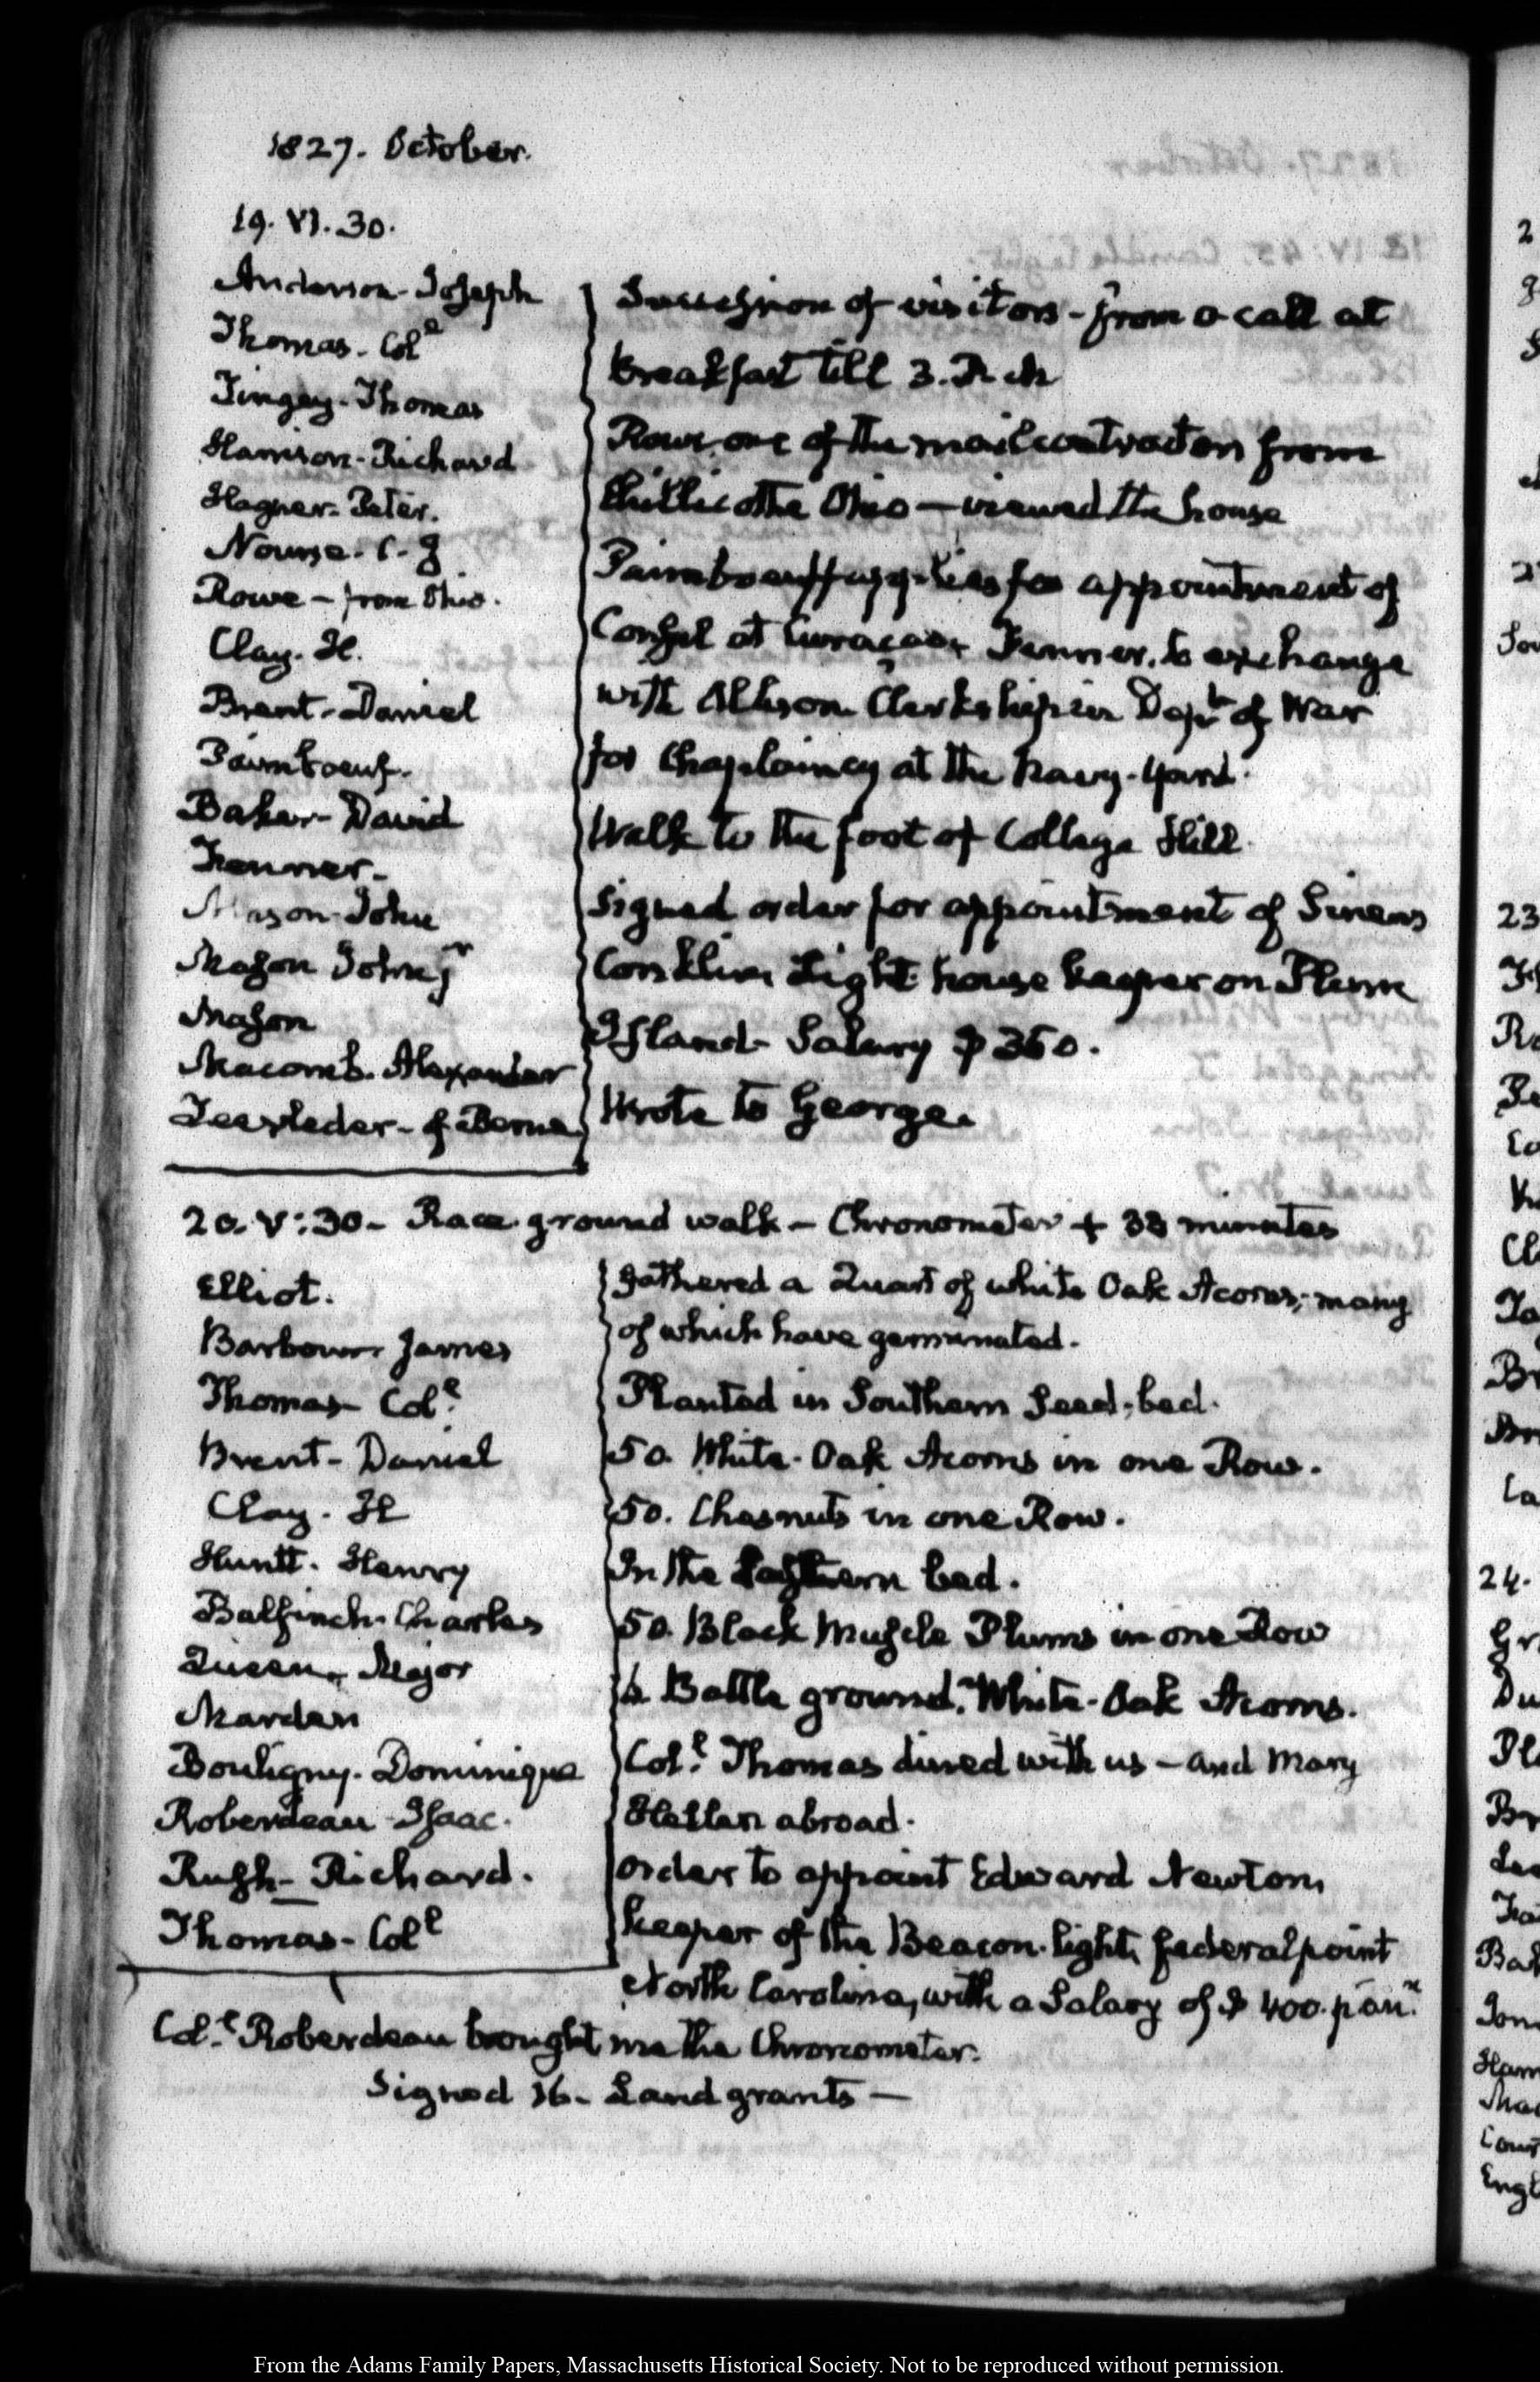 1827. October.
19. VI. 30.
Anderson- Joseph
Thomas- Col.l
Tingey- Thomas
Harrison- Richard
Hagner- Peter.
Nourse- C- J
Rowe- from Ohio.
Clay. H.
Brent- Daniel
Paimboeuf.
Baker- David
Fenner-
Mason- John
Mason John jr
Mason
Macomb. Alexander
Zeerleder- of Berne
Succession of visitors- from a call at
breakfast till 3. P. M
Rowe, one of the mail contractors from
Chillicothe Ohio- viewed the house
Paimboeuf applies for appointment of
Consul at Curaçao. Fenner, to exchange
with Allison Clerkship in Dept of War
for Chaplaincy at the Navy-Yard.
Walk to the foot of College Hill.
Signed order for appointment of
Conklin Light house keeper on Plum
Island- Salary $ 350.
Wrote to George.
20. V: 30- Race ground walk- Chronometer + 38 minutes
Elliot.
Barbour James
Thomas- Col.l
Brent- Daniel
Clay. H
Huntt. Henry
Bulfinch- Charles
Queen, Major
Marden
Bouligny. Dominique
Roberdeau- Isaac.
Rush- Richard.
Thomas- Coll
gathered a Quart of white Oak Acorns; many
of which have germinated.
Planted in Southern Seed-bed.
50. White-Oak Acorns in one Row.
50. Chesnuts in one Row.
In the Eastern bed.
50. Black Muscle Plums in one Row
Battle ground. White-Oak Acorns.
Col.l Thomas dined with us- and Mary
Hellen abroad.
Order to appoint Edward Newton,
keeper of the Beacon-light, federal point
North Carolina, with a Salary of $ 400. p ann.
Col.l Roberdeau brought me the Chronometer.
Signed 36- Land grants-
From the Adams Family Papers, Massachusetts Historical Society. Not to be reproduced without permission.